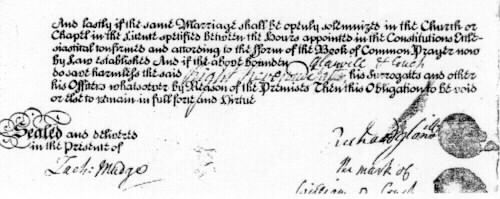 And lastly if the same Marriage shall be openly solemnized in the Church or
Chapel in the Licent specified between the Hours appointed in the Constitutions Ecle-
siastical confirmed and according to the fform of the Book of Common Prayer now
by Law established And if the above bounden Glanvill & Couch
do save harmless the said Right Reverend his Surrogate and other
his Officers whatsoever by Reason of the Premises Then this Obligation to be void
or else to remain in full force and Virtue
Sealed and delivered
in the Presence of
Zach: Mudge
Richard Glanvill
The mark of
William Couch